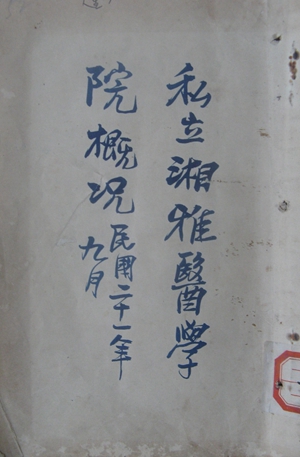 私立湘雅醫學
院概况民國二十一年
九月